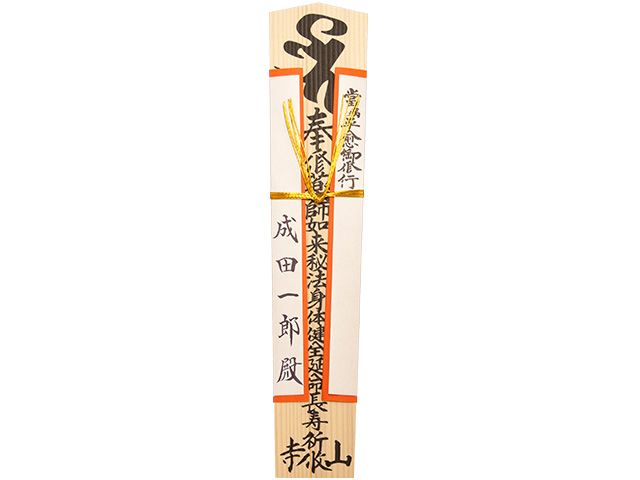 奉修薬師如来秘法身体健全延命長寿祈攸
御修行
成田一郎殿
山
寺